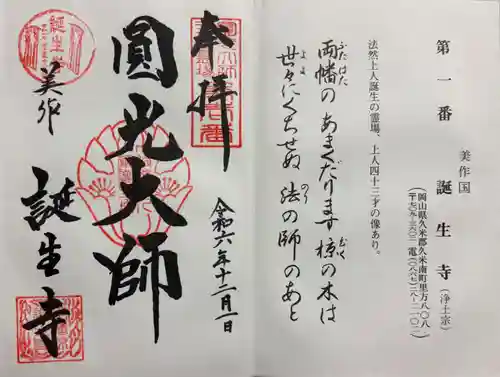 第一番 誕生寺（浄土宗）
美作国
（岡山県久米郡久米南町里方八〇八
法然上人誕生の霊場、上人四十三才の像あり。
両幡の あまくだります 椋の木は
ふたはた
むく
世々にくちせぬ 法の師のあと
よよ
のり
奉拝
令和六年十二月一日
圓光大師
美作
誕生寺
誕生寺